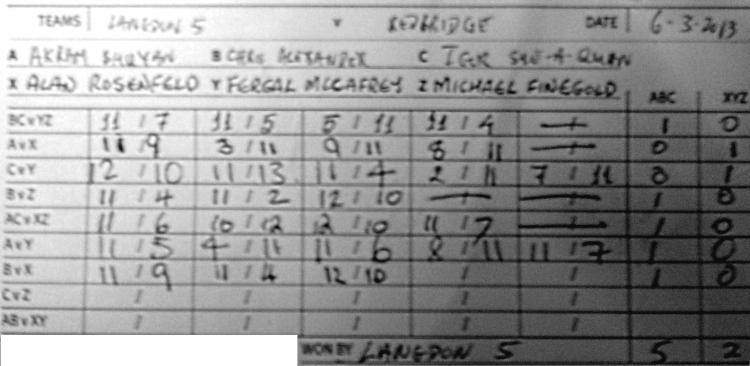 TEAMS LANGDON 5 v REDBRIDGE DATE 6-3-2013
A AKRAM B CHRIS ALEXANDER C
X ALAN ROSENFELD Y FERGAL MCCAFREY Z MICHAEL FINEGOLD ABC XYZ
BCvYZ 11 / 7 11 / 5 5 / 11 11 / 4 1 0
AvX 11 / 9 3 / 11 9 / 11 8 / 11 0 1
CvY 12 / 10 11 / 13 11 / 4 2 / 11 7 / 11 0 1
BvZ 11 / 4 11 / 2 12 / 10 1 0
ACvXZ 11 / 6 10 / 12 12 / 10 11 / 7 1 0
AvY 11 / 5 4 / 11 11 / 6 8 / 11 11 / 7 1 0
BvX 11 / 9 11 / 4 12 / 10 / / 1 0
CvZ / / / / /
ABvXY / / / / /
WON BY LANGDON 5 5 2